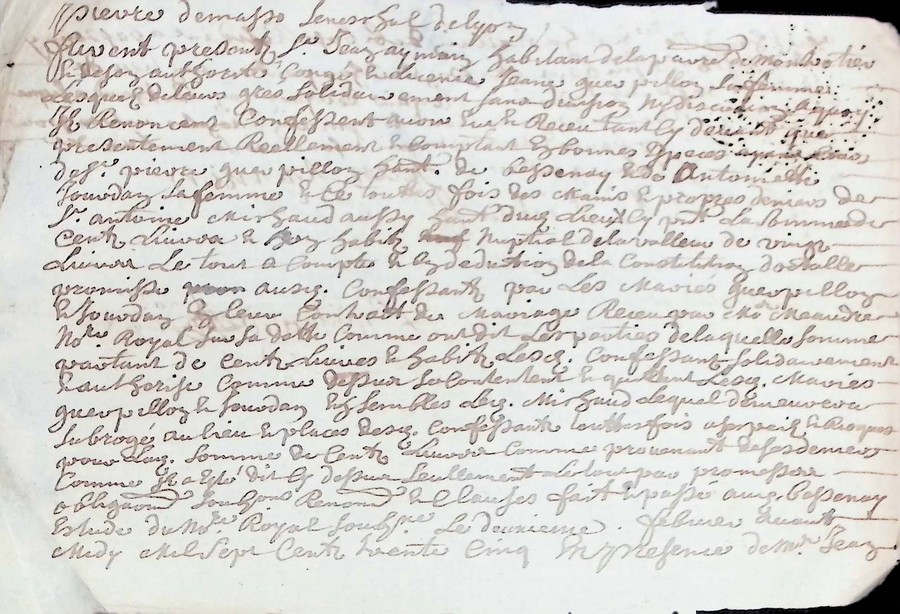 pierre demasso seneschal de Lyon
furent presents Sr Jean aymain habitant de la parre de montrotier
& de son authorité Congé & licence Jeane guerpillon sa femme
Lesquels de leurs gres solidairement sans division Ny discution a quoy
Ils Renoncent Confessent avoir Eu & Receu tant Cy devant que
presentement Reellement & Comptant En bonnes Especes
de Sr pierre guerpillon hant. de bessenay & de Antoinette
Jourdan sa femme & Ce touttes fois des Mains & propres deniers de
Sr antoine Michaud aussy hant dud lieu Cy pnt La somme de
Cent Livres & Son habit Nuptial de la valleur de vingt
Livres Le tout a Compte & En deduction de la Constitution dotalle
promisse ausd. Confessants par Les Maries guerpillon
& Jourdan En leur Contract de Mariage Receu par Me
Nore Royal sur sa datte Comme ont dit Les parties de laquelle somme
partant de Cent Livres & habit Lesd. Confessants solidairement
& authorisé Comme Dessus se Contentent & quittent Lesd. Maries
guerpillon & Jourdan Ensembles led. Michaud lequel demeurera
subrogé au lieu & places desd. Confessants touttesfois
pour lad. somme de Cent Livres Comme provenant de ses deniers
Comme Il a Esté dit Cy dessus seullement Le tout par promesses
obligaons soubmons Renonons & Clauses fait & passé aud. bessenay
Estude du Nore Royal soubsne Le deuxieme febvrier avant
Midy Mil Sept Cent trente Cinq En presence de Mr Jean